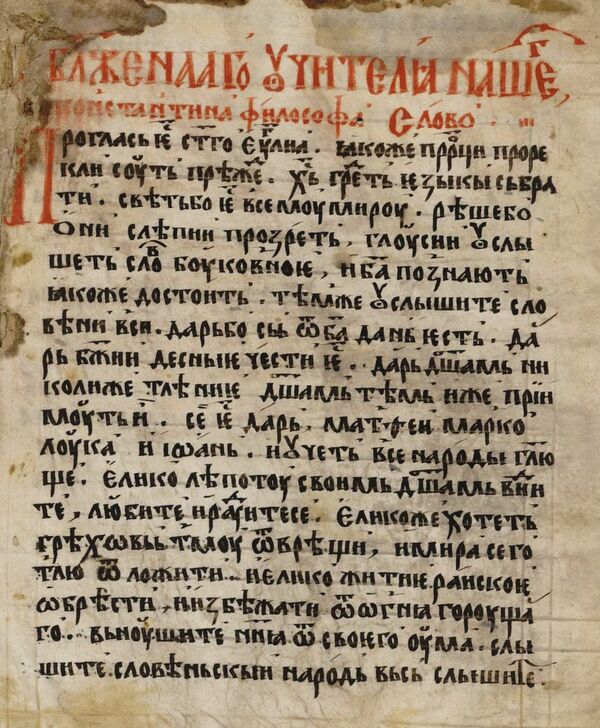 Блаженнааго ѹчителꙗ нашег,
Константина философа Слово.
Прогласъ ѥ ст҃го еѵⷢ҇лиа. ꙗкоже прⷪ҇рци проре
кли соуть прѣжⷣе. х҃ъ грⷣеть ѥзыкы събра
ти. свѣтъ бо ѥ всемоу мироу. рѣше бо
ѡни слѣпии прозреть, глоусии ѹслы
шеть словⷪ боуковноѥ, и б҃а познають
ꙗкоже достоить. тѣмже ѹслышите сло
вѣни вси. даръ бо сы ѿ б҃а данъ ѥсть. да
рь бж҃ии десныѥ чести ѥ. дарь дш҃амь ни
колиже тлѣниѥ дш҃амь тѣмь иже приⷨ
моуть и. се ѥ дарь, матѳеи марко
лоука и іѡань. ѹчеть все народы гл҃ю
ще. Ѥлико лѣпотоу своимь дш҃амь видⷣи
те, любите и радⷣуитесе. Ѥликоже хотеть
грѣхѡвь тмоу ѿврѣщи, и мира сего
тлю ѿложити. и ѥлико житиѥ раискоѥ
ѡбрѣсти, и избѣжати ѿ ѡгнꙗ гороуща
го. вьноушите нн҃ꙗ ѿ своѥго оума. слы
шите словѣньскыи народь вьсь слышите.